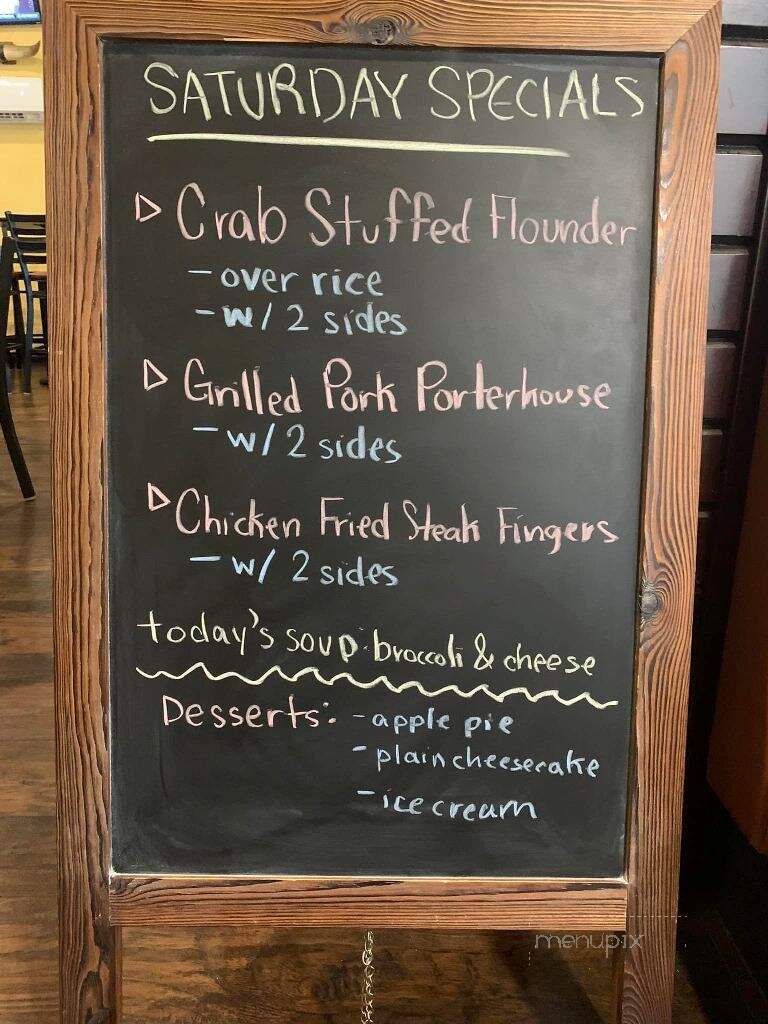 SATURDAY SPECIALS
Crab Stuffed Flounder
- over rice
- w/ 2 sides
Grilled Pork Porterhouse
- w/ 2 sides
Chicken Fried Steak Fingers
- w/ 2 sides
today's soup: broccoli & cheese
Desserts: - apple pie
- plain cheesecake
- ice cream
menupix